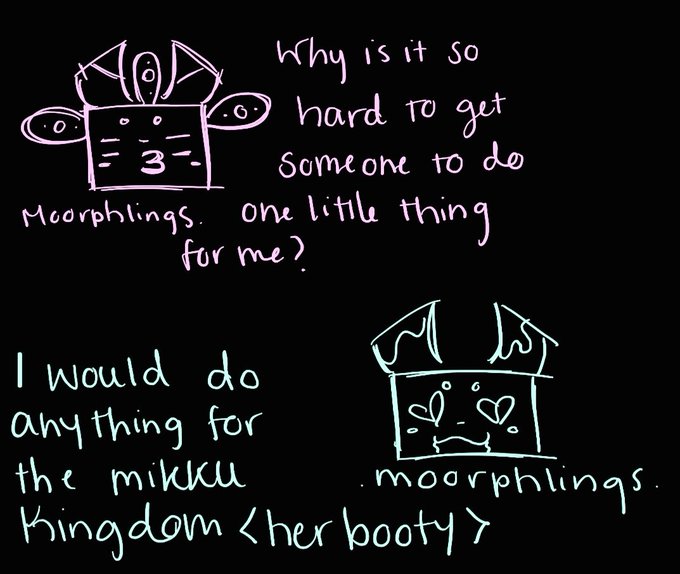 Why is it so
hard to get
someone to do
one little thing
for me?
Moorphlings.
I would do
anything for
the mikku
Kingdom <her booty>
moorphlings.